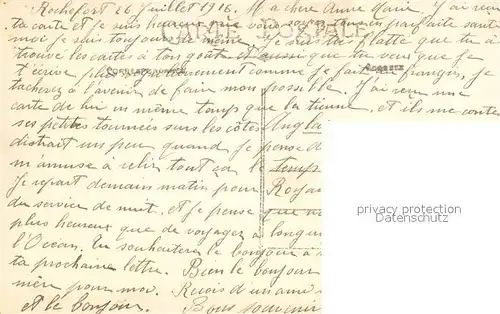 Rochefort 26 Juillet 1916. Ma chère Anne Marie, J'ai reçu
ta carte et je suis heureux que vous soyez tous en parfaite santé
moi je suis toujours de même. Je suis très flatté que tu ai
trouvé les cartes à ton goût et aussi que tu veux que je
t'écrive plus comme je parle en français, je
tâcherai à l'avenir de faire mon possible. J'ai reçu une
carte de lui en même temps que la tienne et il me conte
ses petites tournées sur les côtes Angla
distrait un peu quand je pense d
m'amuse à relire tout ça le temps
Je repart demain matin pour Royan
du service de nuit, et je pense que
plus heureux que de voyager à longu
l'Océan. tu souhaiteras le bonjour à
ta prochaine lettre. Bien le bonjour
mère pour moi. Reçois d'un ami
et le bonjour. Bons souvenir
CARTE POSTALE
CORRESPONDANCE
ADRESSE
privacy protection
Datenschutz